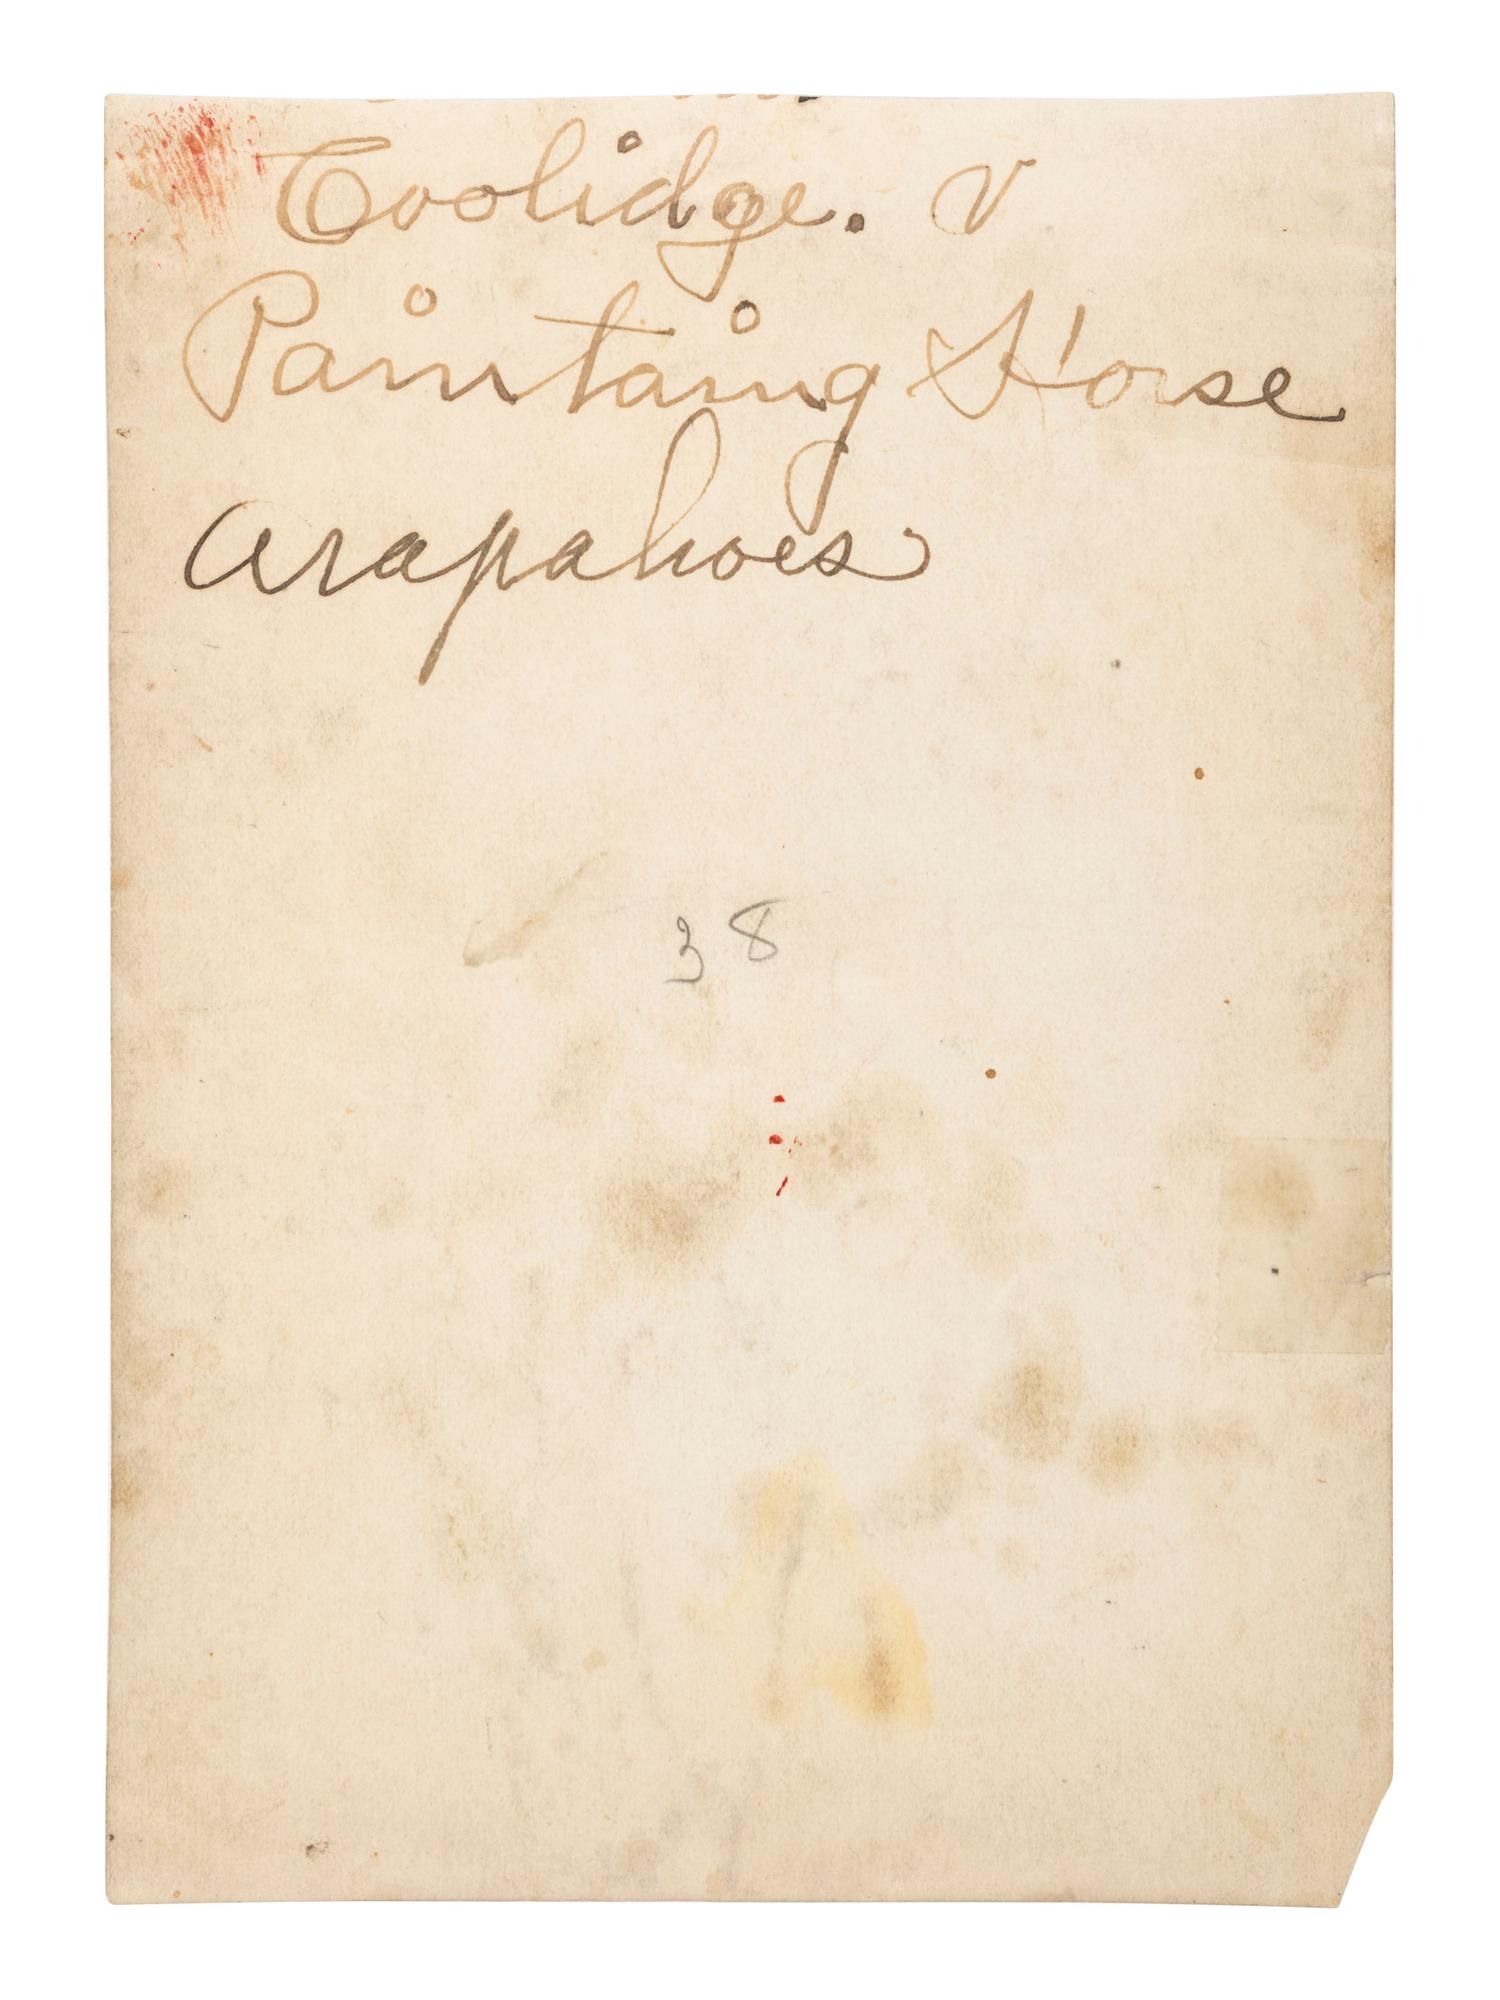 Coolidge. V
Paintaing Horse
arapahoes
38